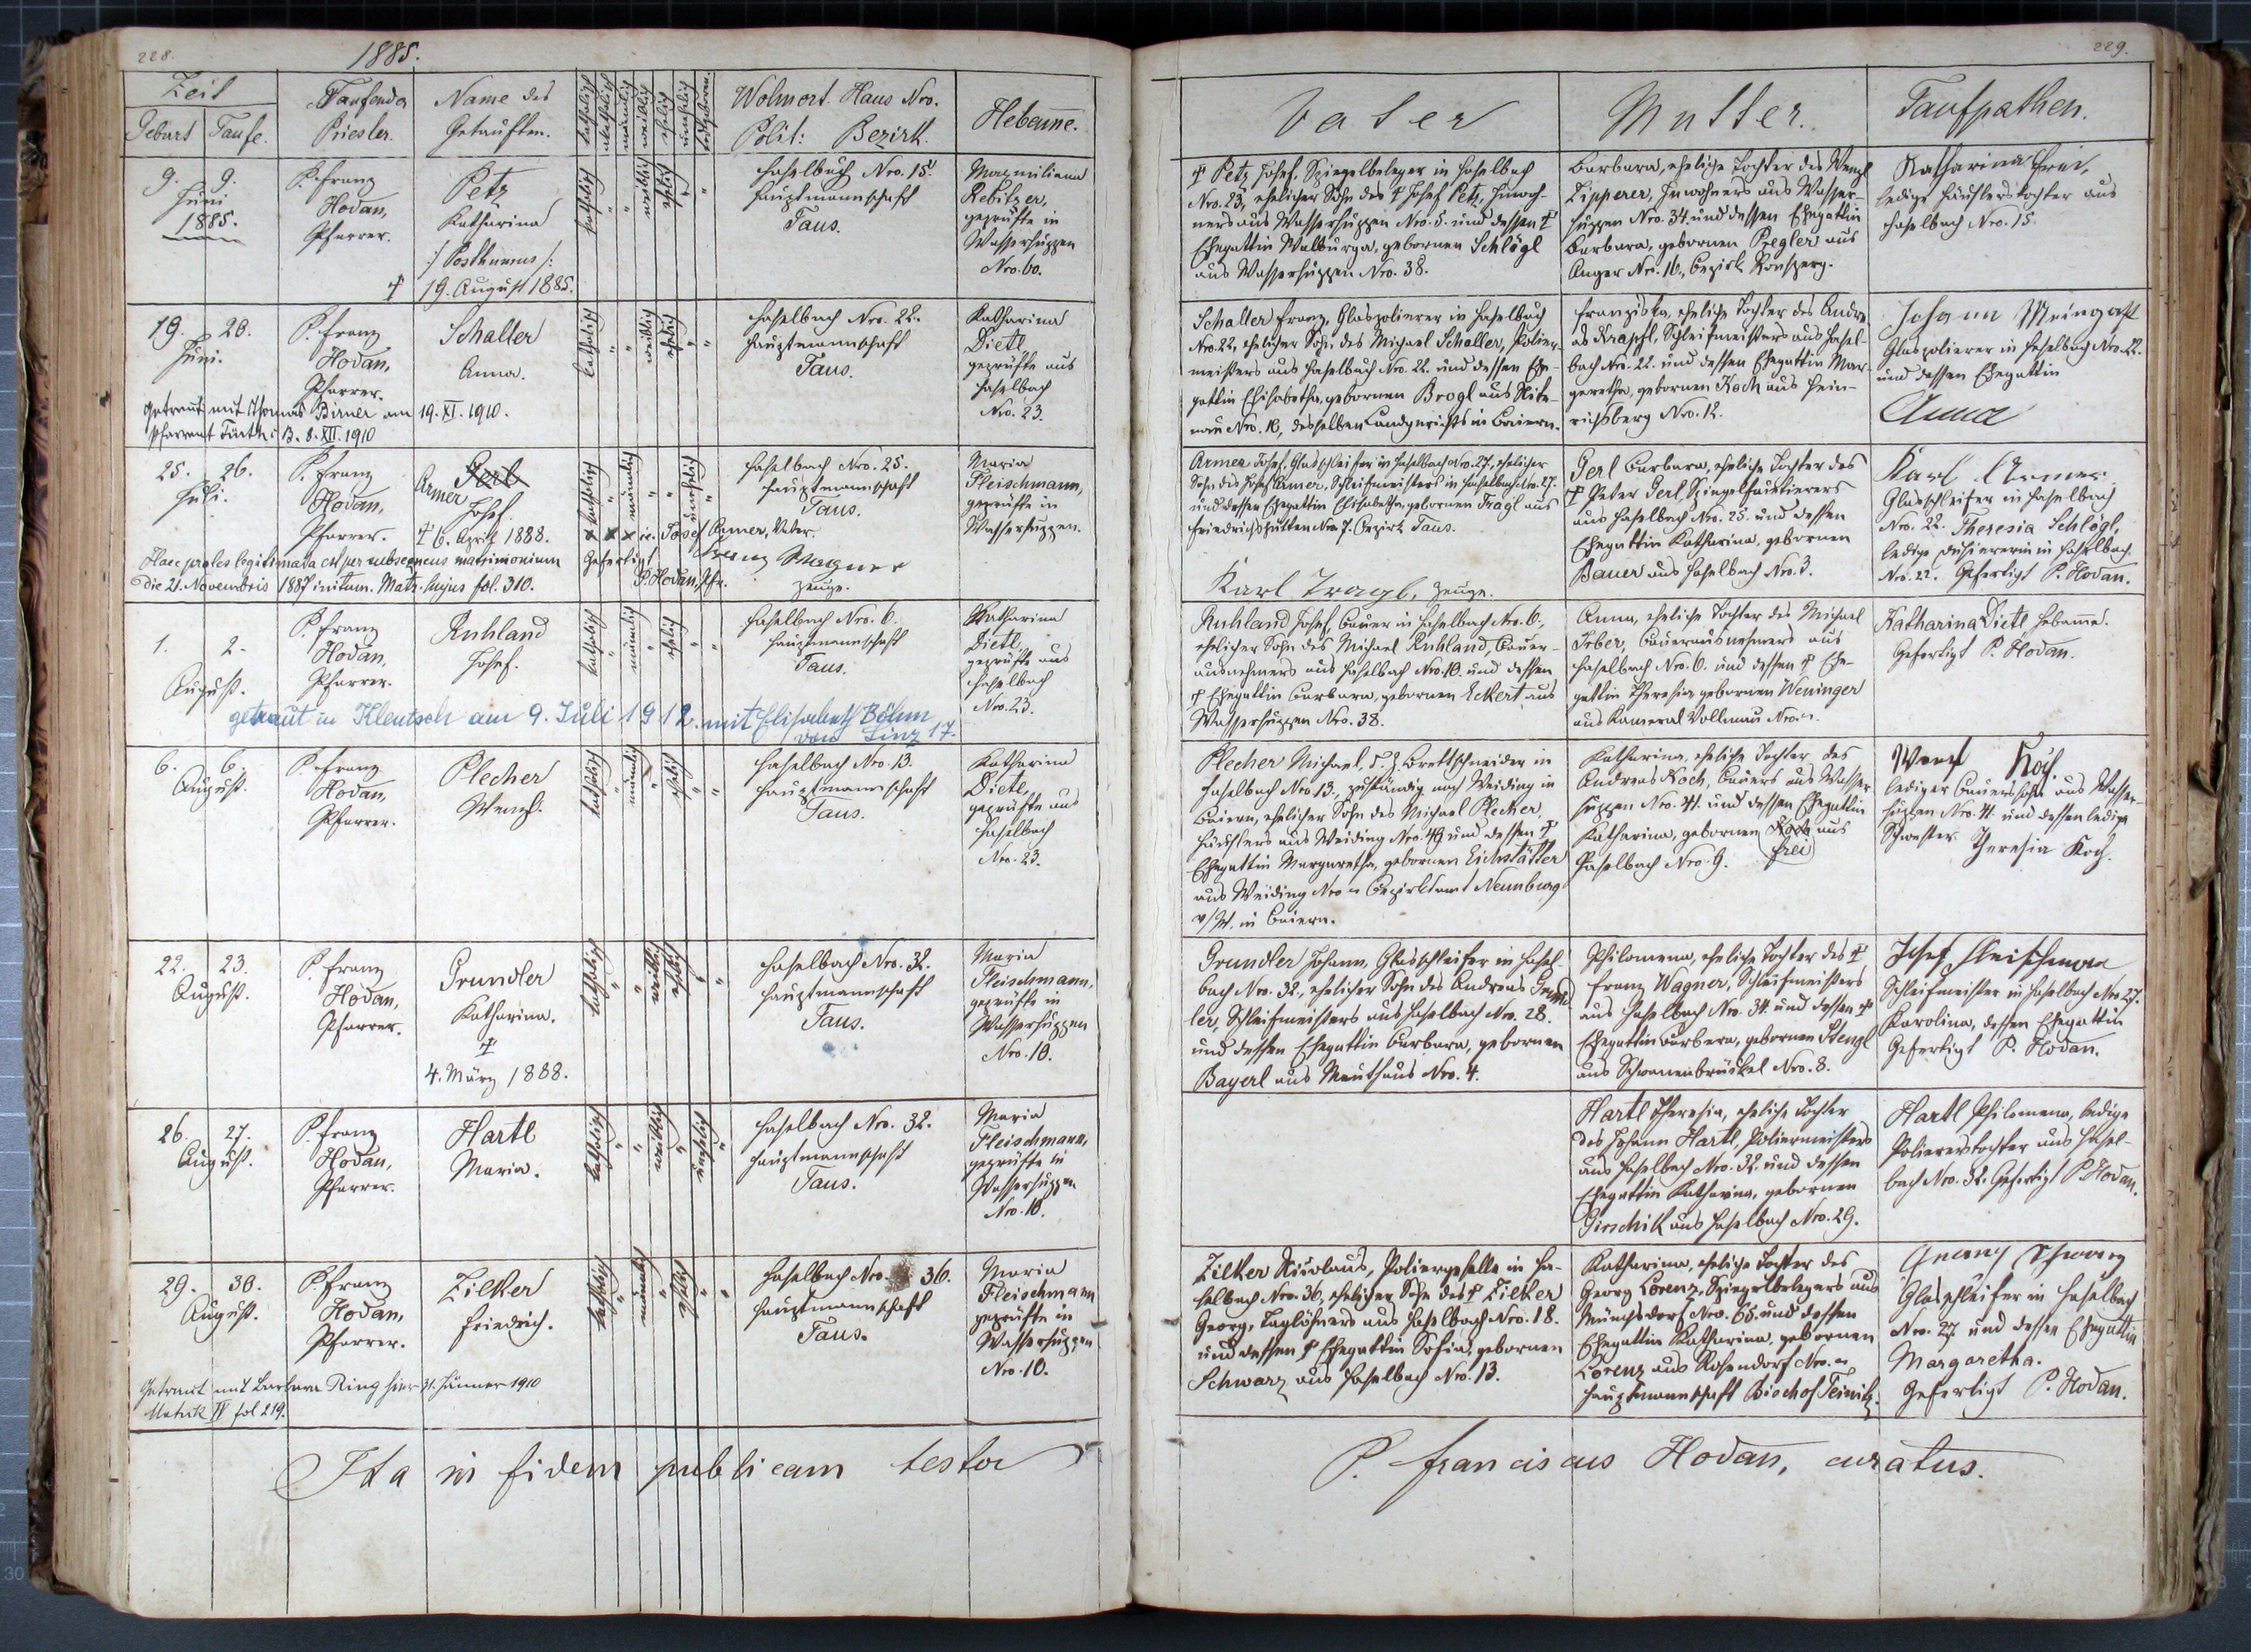 228.
1885.
Zeit
Geburt Taufe.
Taufender
Priester.
Name des
Getauften.
katholisch
akatholisch
männlich
weiblich
ehelich
unehelich
todtgeboren.
Wohnort. Haus Nro.
Polit: Bezirk.
Hebamme.
9. 9.
Juni
1885.
P. Franz
Hodan,
Pfarrer.
Petz
Katharina
:/ Posthumus /:
† 19. August 1885.
katholisch " " weiblich ehelich " "
Haselbach Nro. 15.
Hauptmannschaft
Taus.
Maxmiliana
Rebitzer,
geprüfte in
Wassersuppen
Nro. 60.
19. 20.
Juni.
P. Franz
Hodan,
Pfarrer.
Schaller
Anna.
katholisch " " weiblich ehelich " "
Haselbach Nro. 22.
Hauptmannschaft
Taus.
Katharina
Dietl
geprüfte aus
Haselbach
Nro. 23.
Getraut mit Thomas Birner am 19. XI. 1910.
Pfarramt Fürth i B. 8. XII. 1910
25. 26.
Juli.
P. Franz
Hodan,
Pfarrer.
Gerl
Armer
Josef
† 6. April 1888.
katholisch " männlich " " unehelich "
Haselbach Nro. 25.
Hauptmannschaft
Taus.
Maria
Fleischmann,
geprüfte in
Wassersuppen.
x x x i.e. Josef Armer, Vater.
Haec proles legitimata est per subsequens matrimonium
Gefertigt Franz Wagner
die 21. Novembris 1887 initum. Matr. hujus fol. 310.
P. Hodan, Pfr. Zeuge.
1. 2.
August.
P. Franz
Hodan,
Pfarrer.
Ruhland
Josef.
katholisch " männlich " ehelich " "
Haselbach Nro. 6.
Hauptmannschaft
Taus.
Katharina
Dietl,
geprüfte aus
Haselbach
Nro. 23.
getraut in Klentsch am 9. Juli 1912. mit Elisabeth Böhm
von Linz 17.
6. 6.
August.
P. Franz
Hodan,
Pfarrer.
Plecher
Wenzl.
katholisch " männlich " ehelich " "
Haselbach Nro. 13.
Hauptmannschaft
Taus.
Katharina
Dietl,
geprüfte aus
Haselbach
Nro. 23.
22. 23.
August.
P. Franz
Hodan,
Pfarrer.
Grundler
Katharina.
†
4. März 1888.
katholisch " " weiblich ehelich " "
Haselbach Nro. 32.
Hauptmannschaft
Taus.
Maria
Fleischmann,
geprüfte in
Wassersuppen
Nro. 10.
26. 27.
August.
P. Franz
Hodan,
Pfarrer.
Hartl
Maria.
katholisch " " weiblich " unehelich "
Haselbach Nro. 32.
Hauptmannschaft
Taus.
Maria
Fleischmann,
geprüfte in
Wassersuppen
Nro. 10.
29. 30.
August.
P. Franz
Hodan,
Pfarrer.
Zilker
Friedrich.
katholisch " männlich " ehelich " "
Haselbach Nro. 36.
Hauptmannschaft
Taus.
Maria
Fleischmann
geprüfte in
Wassersuppen
Nro. 10.
Getraut mit Barbara Ring hier 31. Jänner 1910
Matrik IV fol 219.
Ita in fidem publicam testor
229.
Vater
Mutter.
Taufpathen.
† Petz Josef, Spiegelbeleger in Haselbach
Nro. 23, ehelicher Sohn des † Josef Petz, Inwoh-
ners aus Wassersuppen Nro. 5. und dessen †
Ehegattin Walburga, gebornen Schlögl
aus Wassersuppen Nro. 38.
Barbara, eheliche Tochter des Wenzl
Zipperer, Inwohners aus Wasser-
suppen Nro. 34. und dessen Ehegattin
Barbara, gebornen Pregler aus
Anger Nro. 16., Bezirk Ronsperg.
Katharina Frei,
ledige Häuslerstochter aus
Haselbach Nro. 15.
Schaller Franz, Glaspolierer in Haselbach
Nro. 22, ehelicher Sohn des Michael Schaller, Polier-
meisters aus Haselbach Nro. 22. und dessen Ehe-
gattin Elisabetha, gebornen Brogl aus
Nro. 10, desselben Landgerichts in Baiern.
Franziska, eheliche Tochter des Andre-
as Krapfl, Schleifmeisters aus Hasel-
bach Nro. 22. und dessen Ehegattin Mar-
garetha, gebornen Koch aus Hein-
richsberg Nro. 12.
Johann Meingast
Glaspolierer in Haselbach Nro. 22.
und dessen Ehegattin
Anna
Armer Josef, Glasschleifer in Haselbach Nro. 27., ehelicher
Sohn des Josef Armer, Schleifmeisters in Haselbach Nro. 27.
und dessen Ehegattin Elisabetha, gebornen Tragl aus
Friedrichshütten Nro. 7. Bezirk Taus.
Karl Tragl, Zeuge.
Gerl Barbara, eheliche Tochter des
† Peter Gerl, Spiegelfacettierers
aus Haselbach Nro. 25. und dessen
Ehegattin Katharina, gebornen
Bauer aus Haselbach Nro. 3.
Karl Armer
Glasschleifer in Haselbach
Nro. 22. Theresia Schlögl,
ledige in Haselbach
Nro. 22. Gefertigt P. Hodan.
Ruhland Josef, Bauer in Haselbach Nro. 6.,
ehelicher Sohn des Michael Ruhland, Bauer-
ausnehmers aus Haselbach Nro. 10. und dessen
† Ehegattin Barbara, gebornen Eckert aus
Wassersuppen Nro. 38.
Anna, eheliche Tochter des Michael
Irber, Bauerausnehmers aus
Haselbach Nro. 6. und dessen † Ehe-
gattin Theresia gebornen Weninger
aus Kameral Vollmau Nro. "
Katharina Dietl Hebamme.
Gefertigt P. Hodan.
Plecher Michael, Brettschneider in
Haselbach Nro. 13., zuständig nach Weiding in
Baiern, ehelicher Sohn des Michael Plecher,
Häuslers aus Weiding Nro. 49 und dessen †
Ehegattin Margaretha, gebornen Eichstätter
aus Weiding Nro. " Bezirksamt Neunburg
v/W. in Baiern.
Katharina, eheliche Tochter des
Andreas Koch, Bauers aus Wasser-
suppen Nro. 41. und dessen Ehegattin
Katharina, gebornen Koch aus
Haselbach Nro. 9. (Frei)
Wenzl Koch.
lediger Bauerssohn aus Wasser-
suppen Nro. 41. und dessen ledige
Schwester Theresia Koch.
Grundler Johann, Glasschleifer in Hasel-
bach Nro. 32., ehelicher Sohn des Andreas Grund-
ler, Schleifmeisters aus Haselbach Nro. 28.
und dessen Ehegattin Barbara, gebornen
Bayerl aus Mauthaus Nro. 4.
Philomena, eheliche Tochter des †
Franz Wagner, Schleifmeisters
aus Haselbach Nro. 34. und dessen †
Ehegattin Barbara, gebornen Stengl
aus Schwanenbrückl Nro. 8.
Josef Fleischmann
Schleifmeister in Haselbach Nro. 27.
Karolina, dessen Ehegattin
Gefertigt P. Hodan.
Hartl Theresia, eheliche Tochter
des Johann Hartl, Poliermeisters
aus Haselbach Nro. 32. und dessen
Ehegattin Katharina, gebornen
Girschik aus Haselbach Nro. 29.
Hartl Philomena, ledige
Polierertochter aus Hasel-
bach Nro. 32. Gefertigt P. Hodan.
Zilker Nicolaus, Poliergeselle in Ha-
selbach Nro. 36, ehelicher Sohn des † Zilker
Georg, Taglöhners aus Haselbach Nro. 18.
und dessen † Ehegattin Sofia, gebornen
Schwarz aus Haselbach Nro. 13.
Katharina, eheliche Tochter des
Georg Lorenz, Spiegelbelegers aus
Münchsdorf Nro. 65. und dessen
Ehegattin Katharina, gebornen
Lorenz aus Rosendorf Nro. "
Hauptmannschaft Bischof Teinitz.
Georg Schwarz
Glasschleifer in Haselbach
Nro. 27. und dessen Ehegattin
Margaretha.
Gefertigt P. Hodan.
P. Franciscus Hodan, curatus.